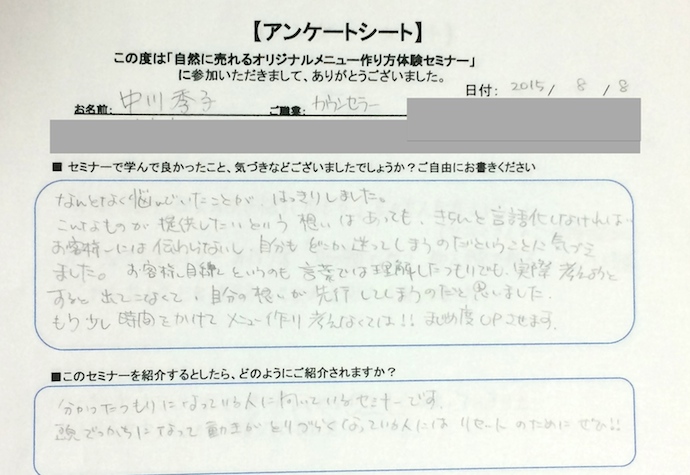 【アンケートシート】
この度は「自然に売れるオリジナルメニュー作り方体験セミナー」
に参加いただきまして、ありがとうございました。
日付： 2015 / 8 / 8
お名前： 中川 季子 ご職業： カウンセラー
■ セミナーで学んで良かったこと、気づきなどございましたでしょうか？ご自由にお書きください
なんとなく悩んでいたことが、はっきりしました。
こんなものが提供したいという想いはあっても、きちんと言語化しなければ
お客様には伝わらないし、自分もどこか迷ってしまうのだということに気づき
ました。お客様目線というのも言葉では理解したつもりでも、実際考えようと
すると出てこなくて、自分の想いが先行してしまうのだと思いました。
もう少し時間をかけてメニュー作り考えなくては!! まじめ度UPさせます。
■このセミナーを紹介するとしたら、どのようにご紹介されますか？
分かったつもりになっている人に向いているセミナーです。
頭でっかちになって動きがとりづらくなっている人にはリセットのためにぜひ!!